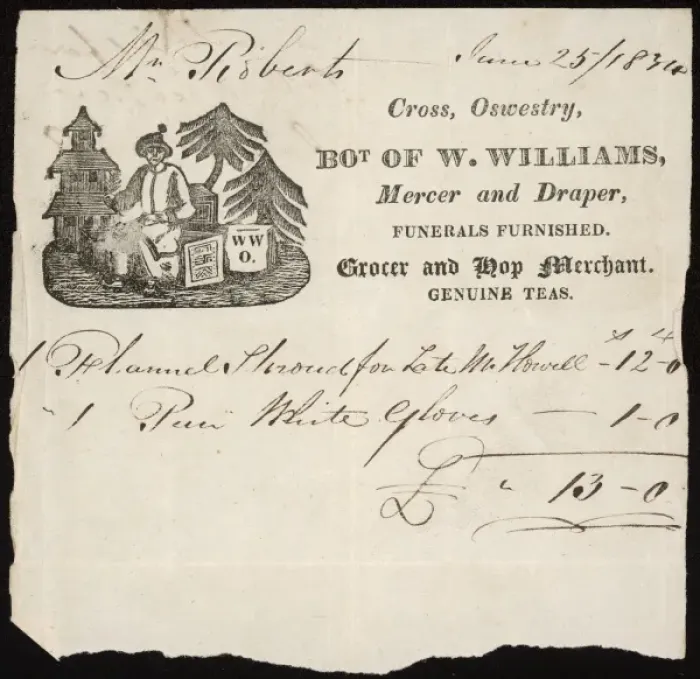 Mr. Roberts June 25/1834
Cross, Oswestry,
BOT OF W. WILLIAMS,
Mercer and Draper,
FUNERALS FURNISHED.
Grocer and Hop Merchant.
GENUINE TEAS.
W W
O.
1 Flannel Shroud for Late Mr Howell - 12 - 0
" 1 Pair White Gloves — 1 - 0
£ " 13 - 0